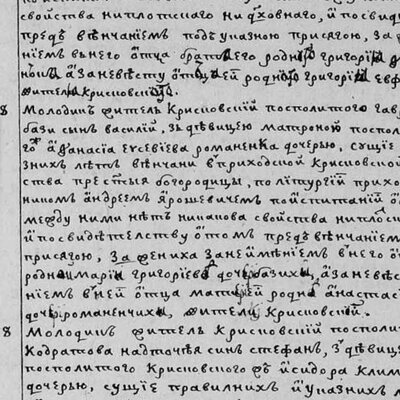 свойства ниплотскаго ни духовнаго, и посвид
предъ вѣнчаніемъ подъ указною присягою, за
ніемъ въ него отца братъ его родной григорій
ной а за невѣсту отца ей родной григорій евф
жители крисковскій.
8 Молодикъ житель крисковскій посполитого гав
бази сынъ василій, зъ дѣвицею матроною поспол
го аѳанасія евсевіева романенка дочерью, сущіе
зныхъ лѣтъ вѣнчани въ приходской крисковской
ства престыя богородицы, по літургій прихо
никомъ андреемъ ярошевичемъ по испитаній
между ними нѣтъ никакова свойства ниплос
и посвидѣтелству о томъ предъ вѣнчаніем
присягою, за жениха за неимѣніемъ въ него о
родна марія григоріева дочь базиха, а за невѣс
ніемъ въ ней отца матерѣй родна анастас
дочь романенчиха, жители крисковскій.
8 Молодикъ житель крисковскій посполи
кодратова надточѣя синъ стефанъ, зъ дѣвице
посполитого крисковского дъ исидора клим
дочерью, сущіе правилнихъ и указнихъ л